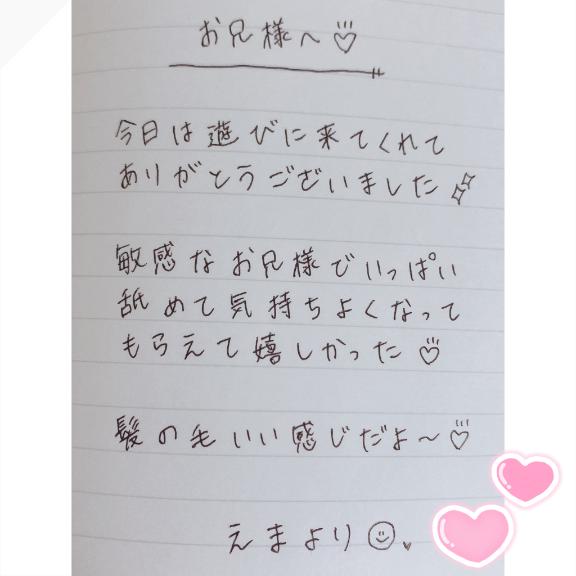 お兄様へ♡
今日は遊びに来てくれて
ありがとうございました
敏感なお兄様でいっぱい
舐めて気持ちよくなって
もらえて嬉しかった♡
髪の毛いい感じだよ〜♡
えまより☺♥